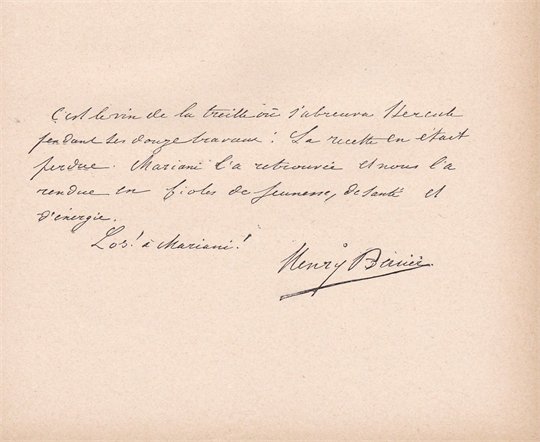 C'est le vin de la treille où s'abreuva Hercule
pendant ses douze travaux! La recette en était
perdue. Mariani l'a retrouvée et nous l'a
rendue en fioles de Jeunesse, de Santé et
d'énergie.
Los! à Mariani!
Henry